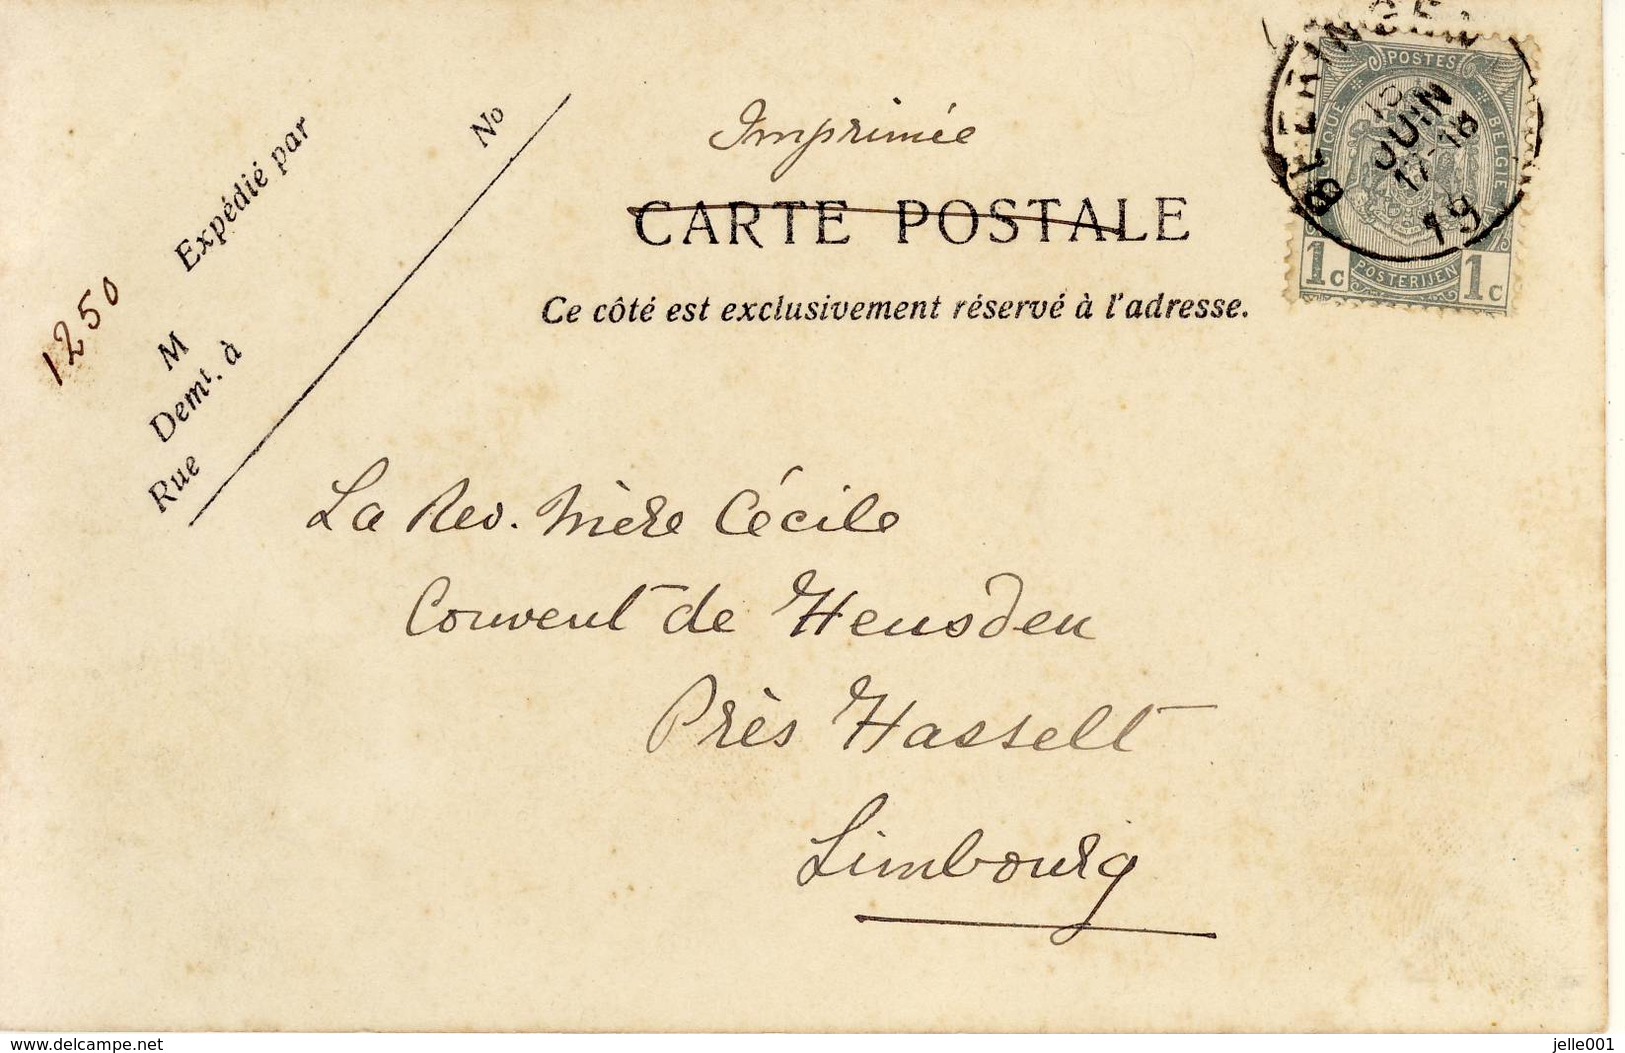 Imprimée
CARTE POSTALE
Ce côté est exclusivement réservé à l'adresse.
Expédié par
No
M
Demt. à
Rue
1250
POSTES
BELGIQUE BELGIE
1c POSTERIJEN 1c
BEERINGEN
JUIN
17-18
19
La Rev. Mère Cécile
Couvent de Heusden
Près Hasselt
Limbourg
www.delcampe.net
jelle001